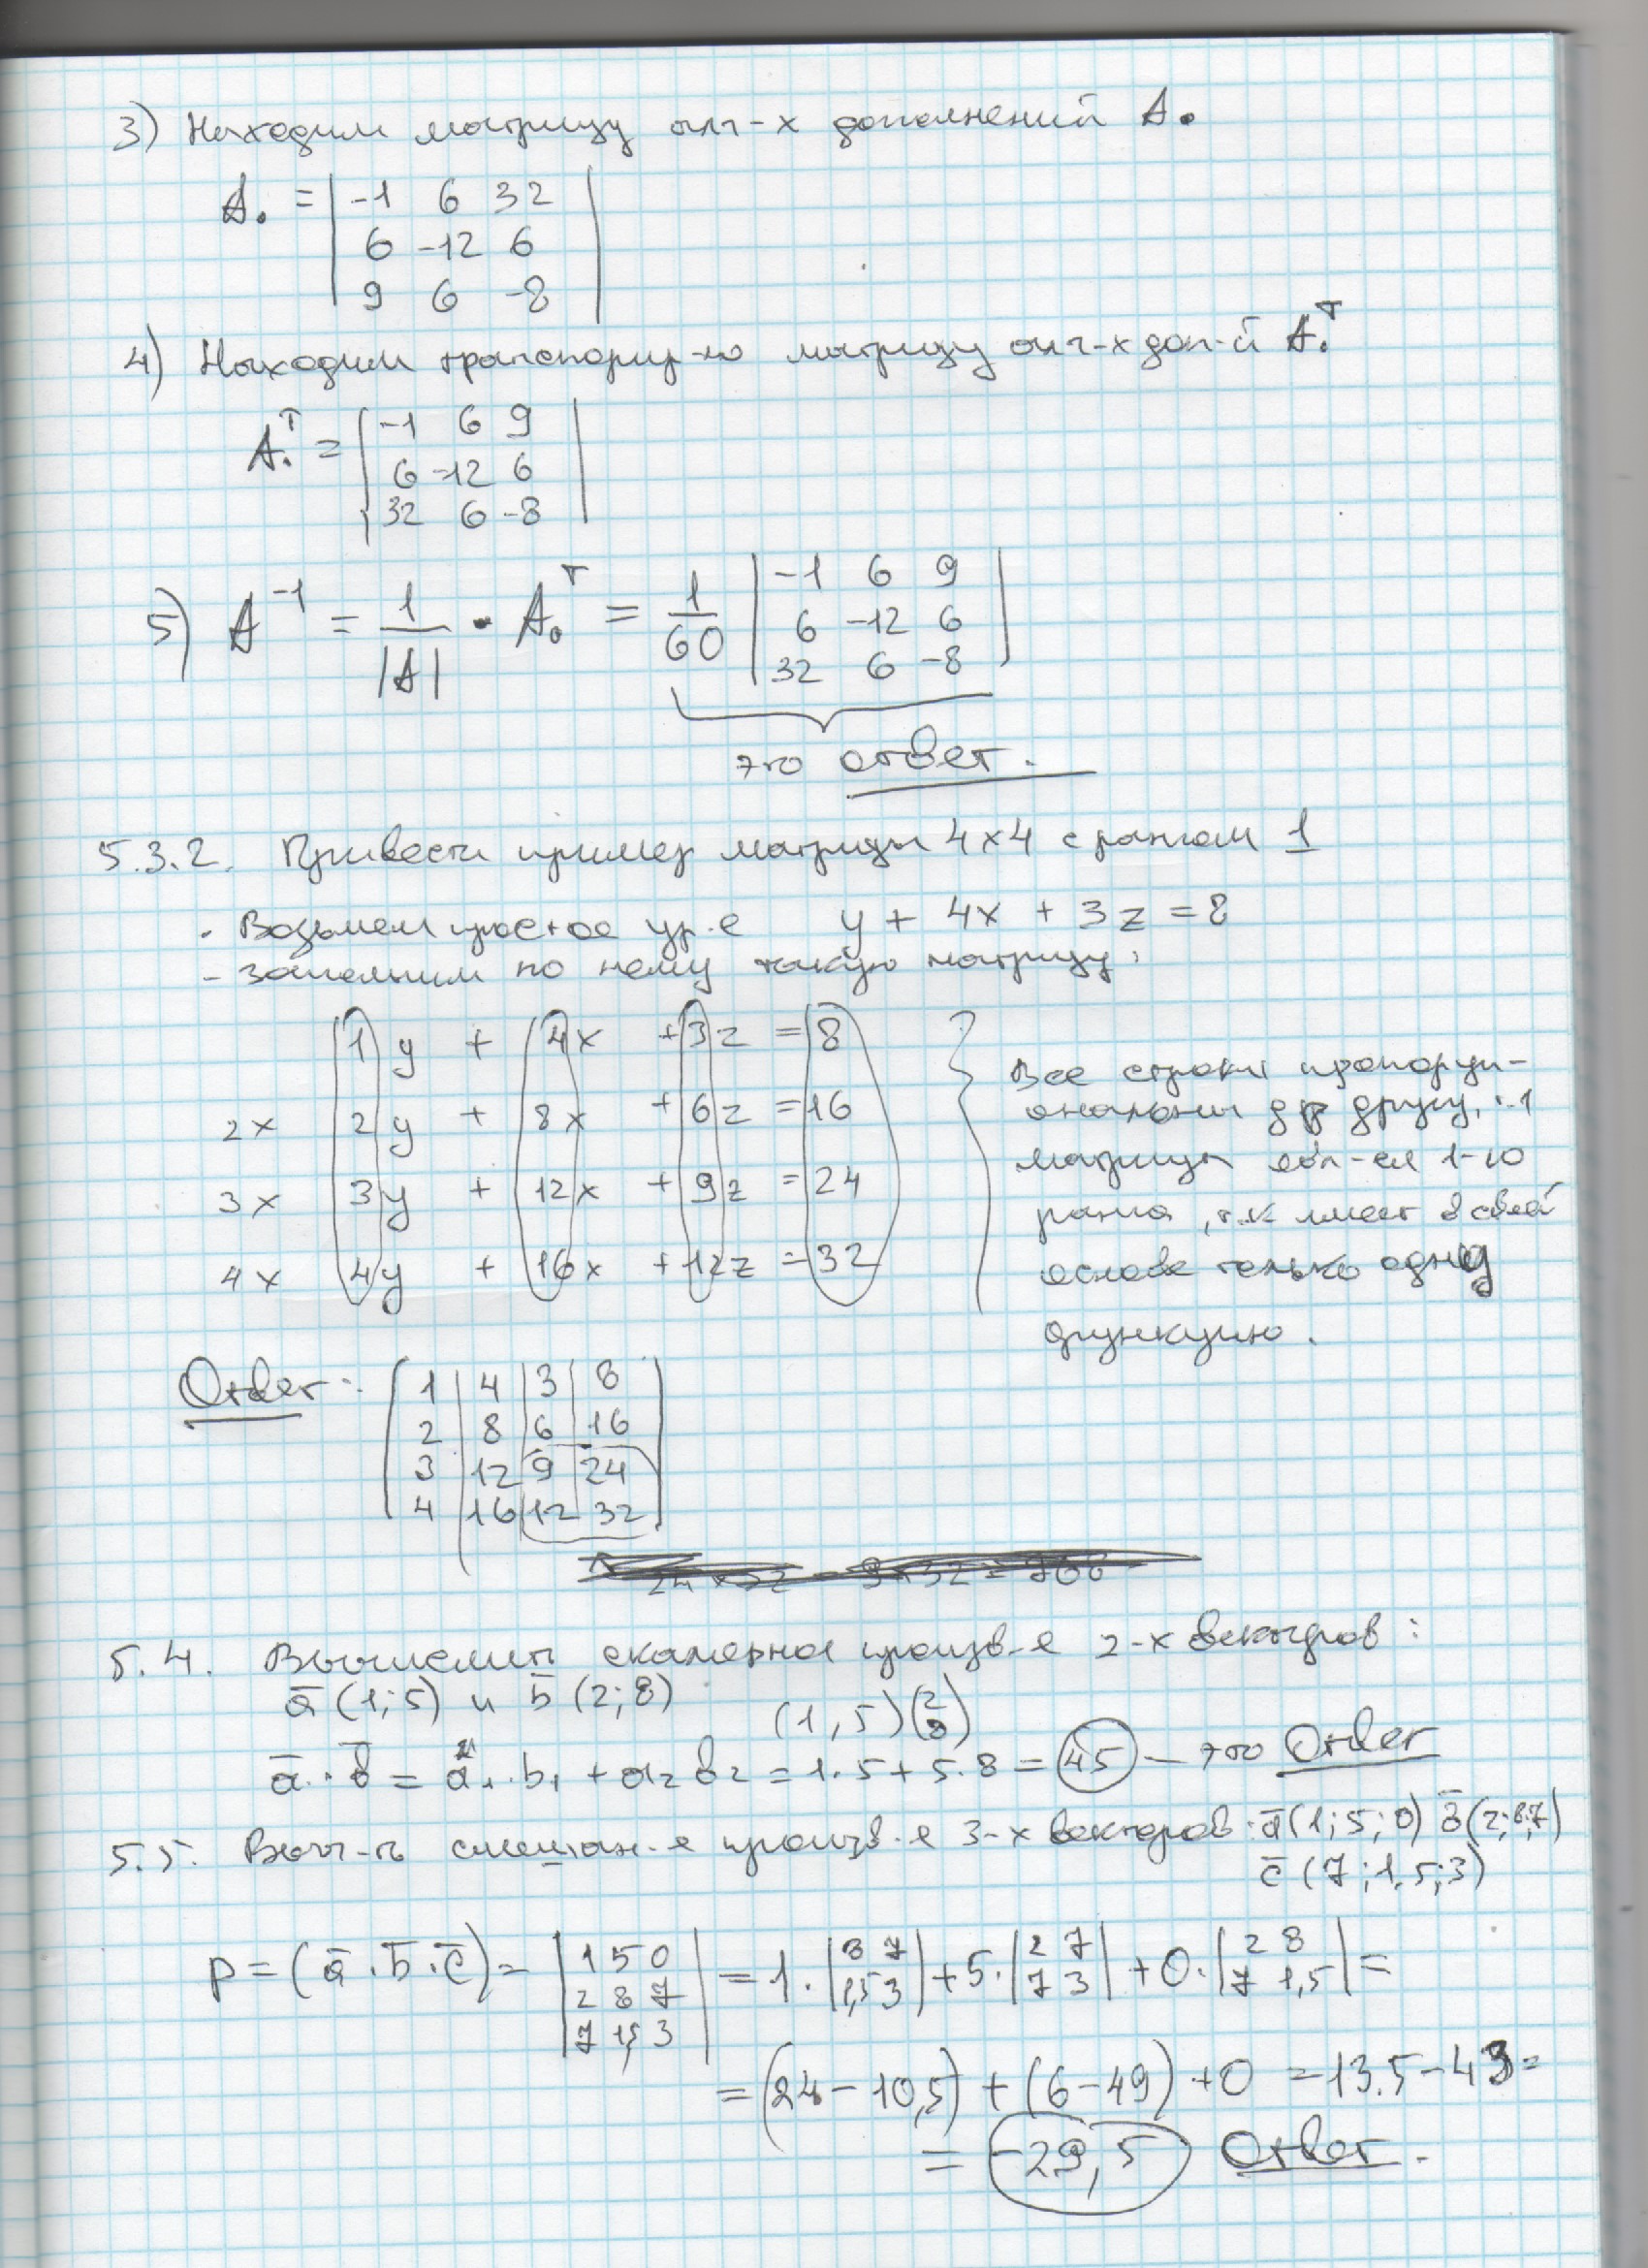 3) Находим матрицу алг-х дополнений A.
A. = | -1 6 32 |
6 -12 6
9 6 -8
4) Находим транспонир-ю матрицу алг-х доп-й A.ᵀ
A.ᵀ = | -1 6 9 |
6 -12 6
32 6 -8
5) A⁻¹ = 1/|A| · A.ᵀ = 1/60 | -1 6 9 |
6 -12 6
32 6 -8
это ответ.
5.3.2. Привести пример матрицы 4x4 с рангом 1
- Возьмем простое ур-е y + 4x + 3z = 8
- заполним по нему такую матрицу:
1y + 4x + 3z = 8
2x 2y + 8x + 6z = 16
3x 3y + 12x + 9z = 24
4x 4y + 16x + 12z = 32
Все строки пропорци-
ональны др другу,
матрица явл-ся 1-го
ранга, т.к имеет в своей
основе только одну
функцию.
Ответ:
1 4 3 8
2 8 6 16
3 12 9 24
4 16 12 32
5.4. Вычислить скалярное произв-е 2-х векторов:
a̅ (1; 5) и b̅ (2; 8) (1, 5)(2 8)
a̅ · b̅ = a₁ · b₁ + a₂ b₂ = 1·5 + 5·8 = 45 — это Ответ
5.5. Выч-ть смешан-е произв-е 3-х векторов: a̅(1; 5; 0) b̅(2; 8; 7)
c̅ (7; 1,5; 3)
p = (a̅ · b̅ · c̅) = | 1 5 0 | = 1 · | 8 7 | + 5 · | 2 7 | + 0 · | 2 8 | =
2 8 7 1,5 3 7 3 7 1,5
7 1,5 3
= (24 - 10,5) + (6 - 49) + 0 = 13.5 - 43 =
= -29,5 Ответ.